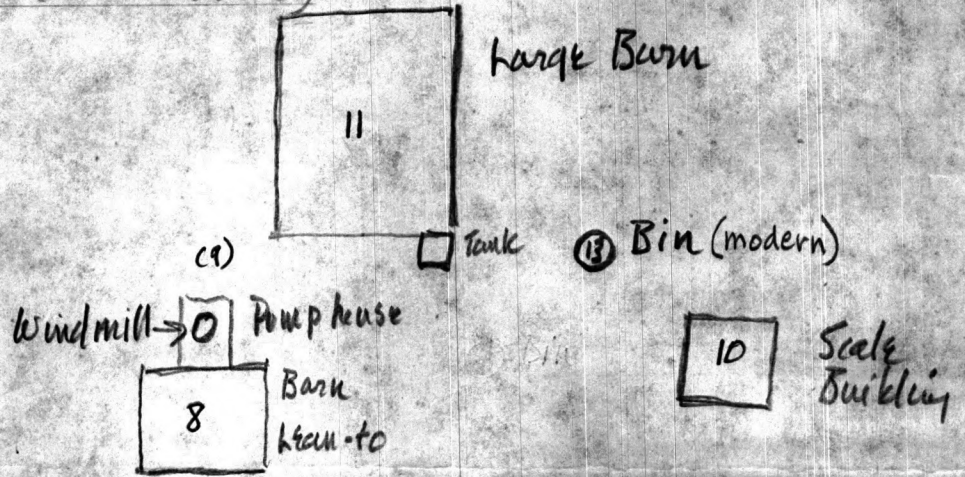 Large Barn
11
Tank
13 Bin (modern)
(9)
Windmill → Pump house
10
Scale
Building
8
Barn
Lean-to